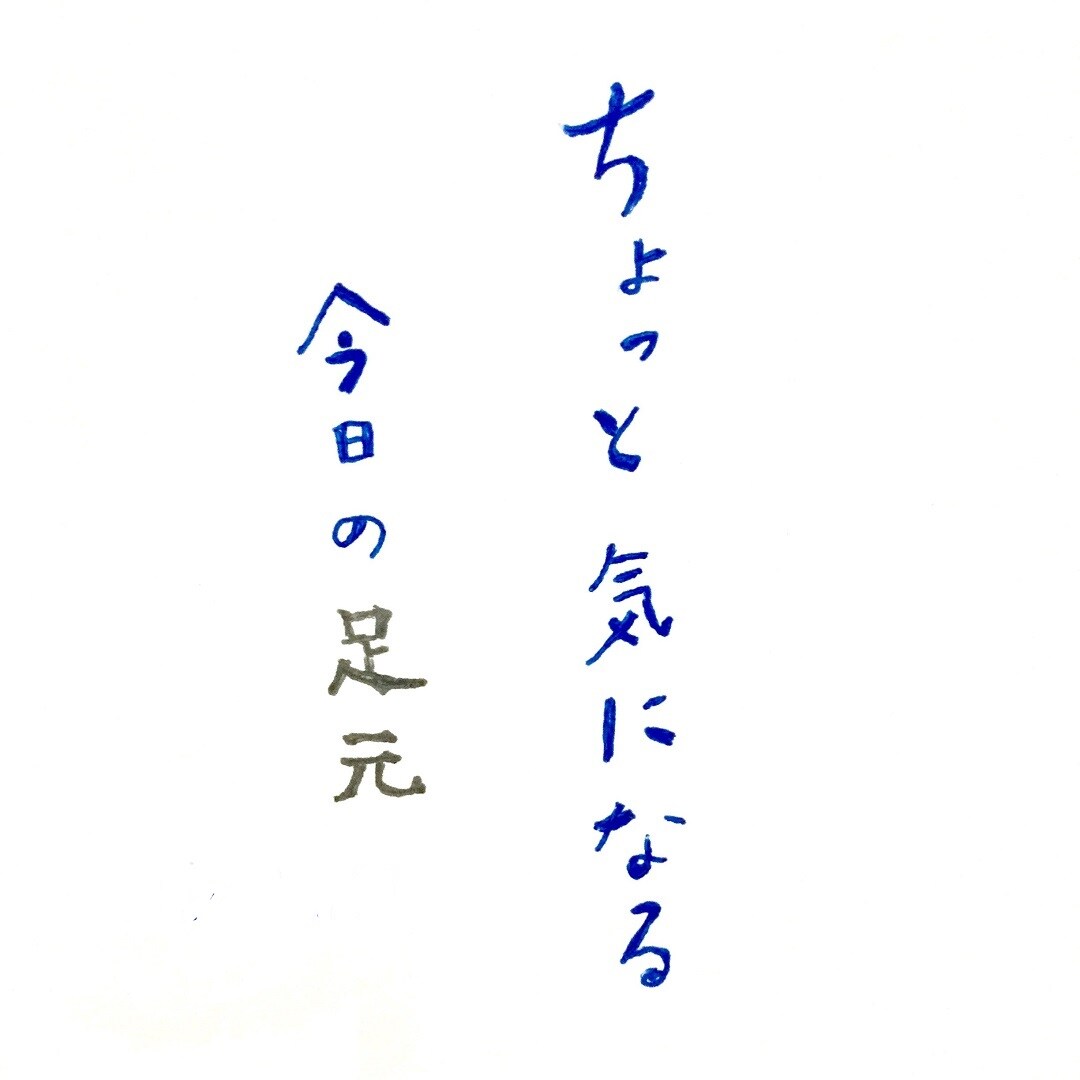 ちょっと気になる
今日の足元